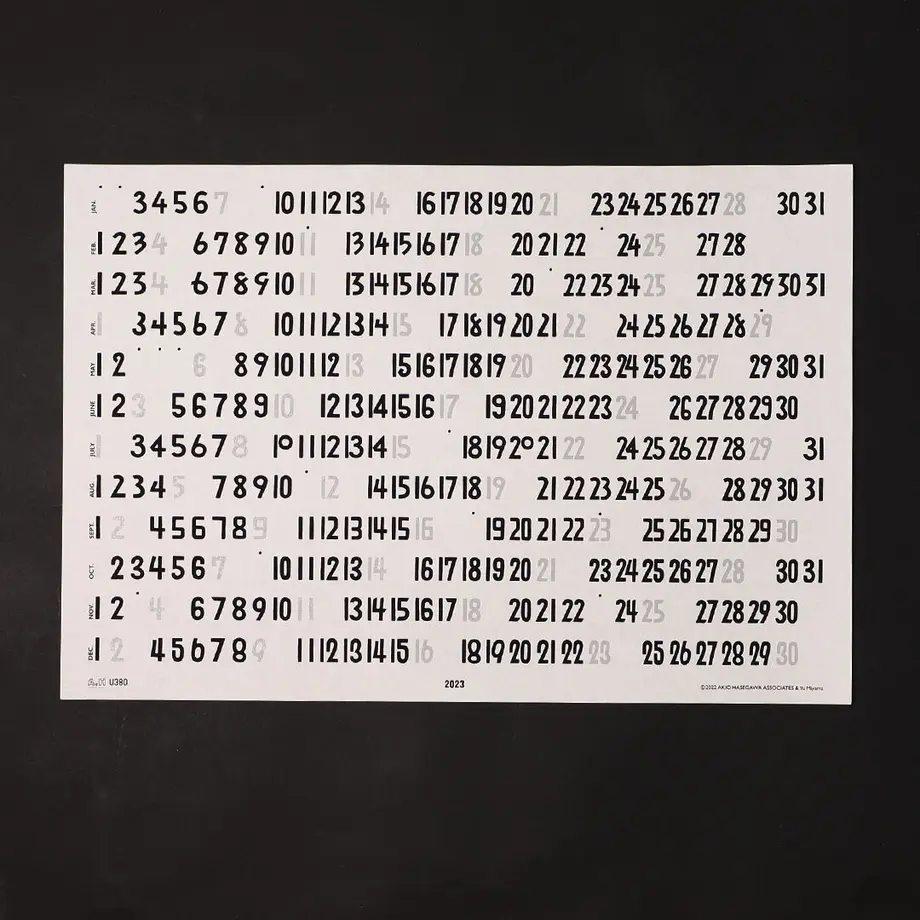 JAN. 3 4 5 6 7 10 11 12 13 14 16 17 18 19 20 21 23 24 25 26 27 28 30 31
FEB. 1 2 3 4 6 7 8 9 10 11 13 14 15 16 17 18 20 21 22 24 25 27 28
MAR. 1 2 3 4 6 7 8 9 10 11 13 14 15 16 17 18 20 22 23 24 25 27 28 29 30 31
APR. 1 3 4 5 6 7 8 10 11 12 13 14 15 17 18 19 20 21 22 24 25 26 27 28 29
MAY 1 2 6 8 9 10 11 12 13 15 16 17 18 19 20 22 23 24 25 26 27 29 30 31
JUNE 1 2 3 5 6 7 8 9 10 12 13 14 15 16 17 19 20 21 22 23 24 26 27 28 29 30
JULY 1 3 4 5 6 7 8 10 11 12 13 14 15 18 19 20 21 22 24 25 26 27 28 29 31
AUG. 1 2 3 4 5 7 8 9 10 12 14 15 16 17 18 19 21 22 23 24 25 26 28 29 30 31
SEPT. 1 2 4 5 6 7 8 9 11 12 13 14 15 16 19 20 21 22 23 25 26 27 28 29 30
OCT. 2 3 4 5 6 7 10 11 12 13 14 16 17 18 19 20 21 23 24 25 26 27 28 30 31
NOV. 1 2 4 6 7 8 9 10 11 13 14 15 16 17 18 20 21 22 24 25 27 28 29 30
DEC. 1 2 4 5 6 7 8 9 11 12 13 14 15 16 18 19 20 21 22 23 25 26 27 28 29 30
A.H U380 2023 ©2022 AKIO HASEGAWA ASSOCIATES & Yu Miyama